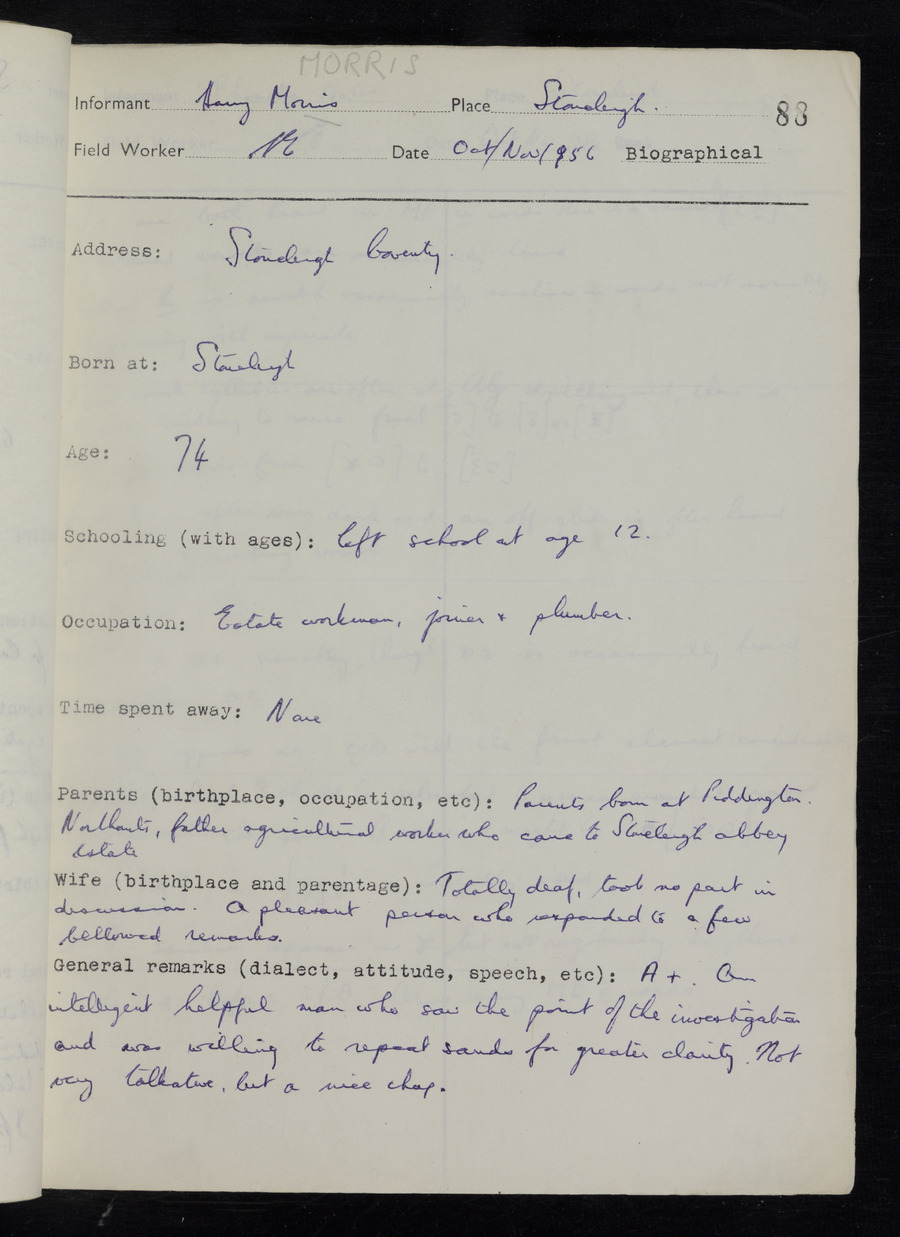 MORRIS
Informant Harry Morris Place Stoneleigh. 88
Field Worker Date Oct/Nov/956 Biographical
Address: Stoneleigh Coventry.
Born at: Stoneleigh
Age: 74
Schooling (with ages): left school at age 12.
Occupation: Estate workman, joiner + plumber.
Time spent away: None
Parents (birthplace, occupation, etc): Parents born at Piddington.
Northants, father agricultural worker who came to Stoneleigh abbey
estate
Wife (birthplace and parentage): Totally deaf, took no part in
discussion. A pleasant person who responded to a few
bellowed remarks.
General remarks (dialect, attitude, speech, etc): A+. An
intelligent helpful man who saw the point of the investigation
and was willing to repeat sounds for greater clarity. Not
very talkative, but a nice chap.